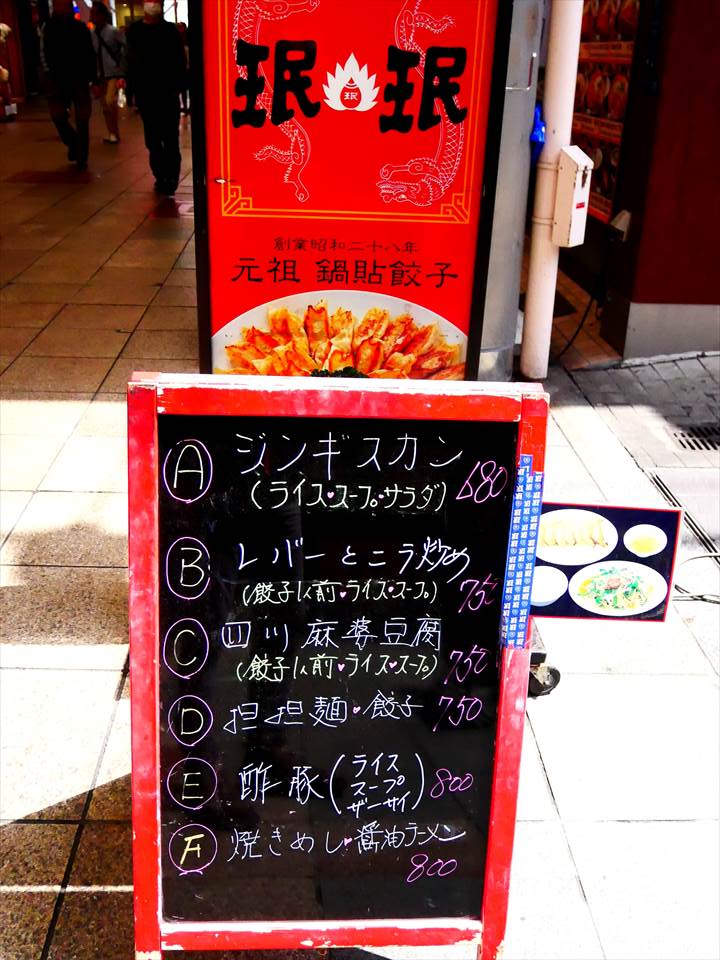 珉珉
珉
創業昭和二十八年
元祖 鍋貼餃子
A ジンギスカン
(ライス・スープ・サラダ) 680
B レバーとニラ炒め
(餃子1人前・ライス・スープ) 750
C 四川麻婆豆腐
(餃子1人前・ライス・スープ) 750
D 担担麺・餃子 750
E 酢豚(ライス
スープ
ザーサイ) 800
F 焼きめし・醤油ラーメン
800